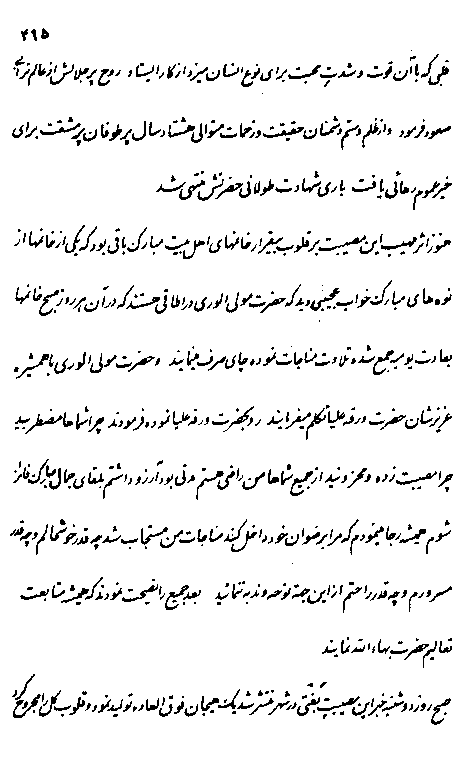 ۴۹۵
قلبی که با آن قوت و شدت محبت برای نوع انسان میزد از کار ایستاد روح پر جلالش از عالم ترابی
صعود فرمود و از ظلم و ستم دشمنان حقیقت و زحمات متوالی هشتاد سال پر طوفان پر مشقت برای
خیر عموم رهائی یافت باری شهادت طولانی حضرتش منتهی شد
هنوز اثر مهیب این مصیبت بر قلوب بیقرار خانمهای اهل بیت مبارک باقی بود که یکی از خانمها از
نوه های مبارک خواب عجیبی دید که حضرت مولی الوری در اطاقی هستند که در آن هر روز صبح خانمها
بعادت یومیه جمع شده تلاوت مناجات نموده چای صرف مینمایند و حضرت مولی الوری با همشیره
عزیزشان حضرت ورقه علیا تکلم میفرمایند رو بحضرت ورقه علیا نموده فرمودند چرا شماها مضطربید
چرا مصیبت زده و محزونید از جمیع شماها من راضی هستم مدتی بود آرزو داشتم بلقای جمال مبارک فائز
شوم همیشه رجا مینمودم که مرا برضوان خود داخل کند مناجات من مستجاب شد چه قدر خوشحالم و چه قدر
مسرورم و چه قدر راحتم از این جهة نوحه و ندبه ننمائید بعد جمیع را نصیحت نمودند که همیشه متابعت
تعالیم حضرت بهاءالله نمایند
صبح روز دوشنبه خبر این مصیبت بغتی در شهر منتشر شد یک هیجان فوق العاده تولید نمود و قلوب کل را مجروح کرد